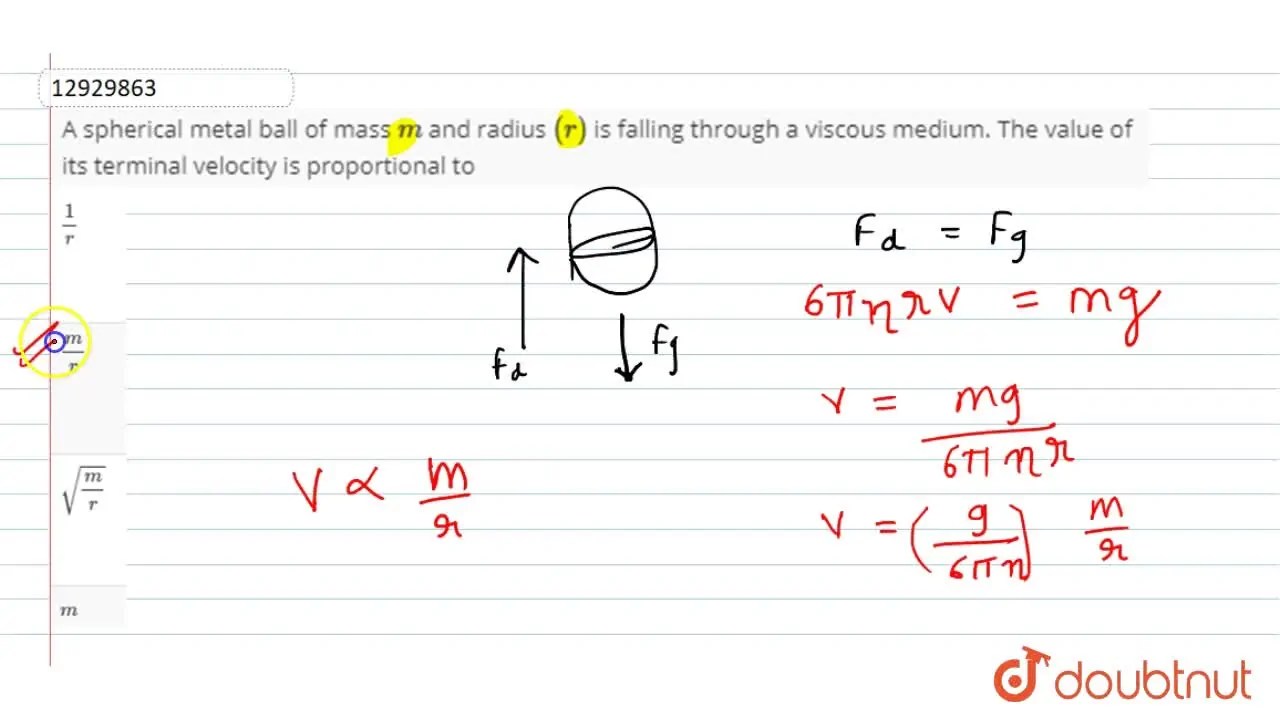 12929863
A spherical metal ball of mass m and radius (r) is falling through a viscous medium. The value of
its terminal velocity is proportional to
1/r
m/r
√(m/r)
m
Fd
Fg
Fd = Fg
6πηrv = mg
v = mg/6πηr
v = (g/6πη) m/r
V ∝ m/r
doubtnut